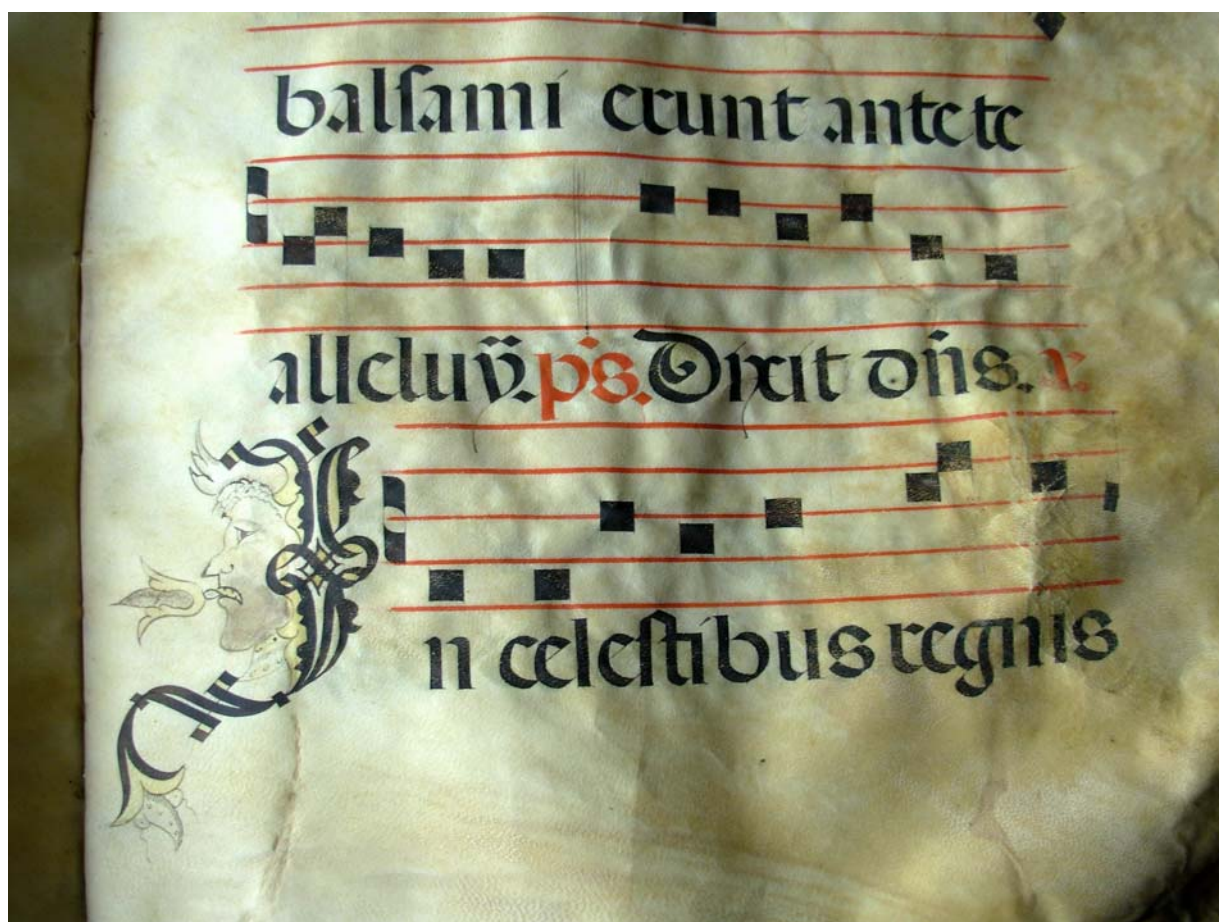 balsami erunt ante te
alleluỹ. ps. Dixit dn̄s. r.
In celestibus regnis